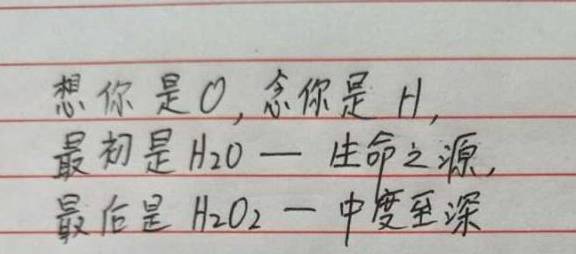 想你是O,念你是H,
最初是H2O — 生命之源,
最后是H2O2 — 中度至深